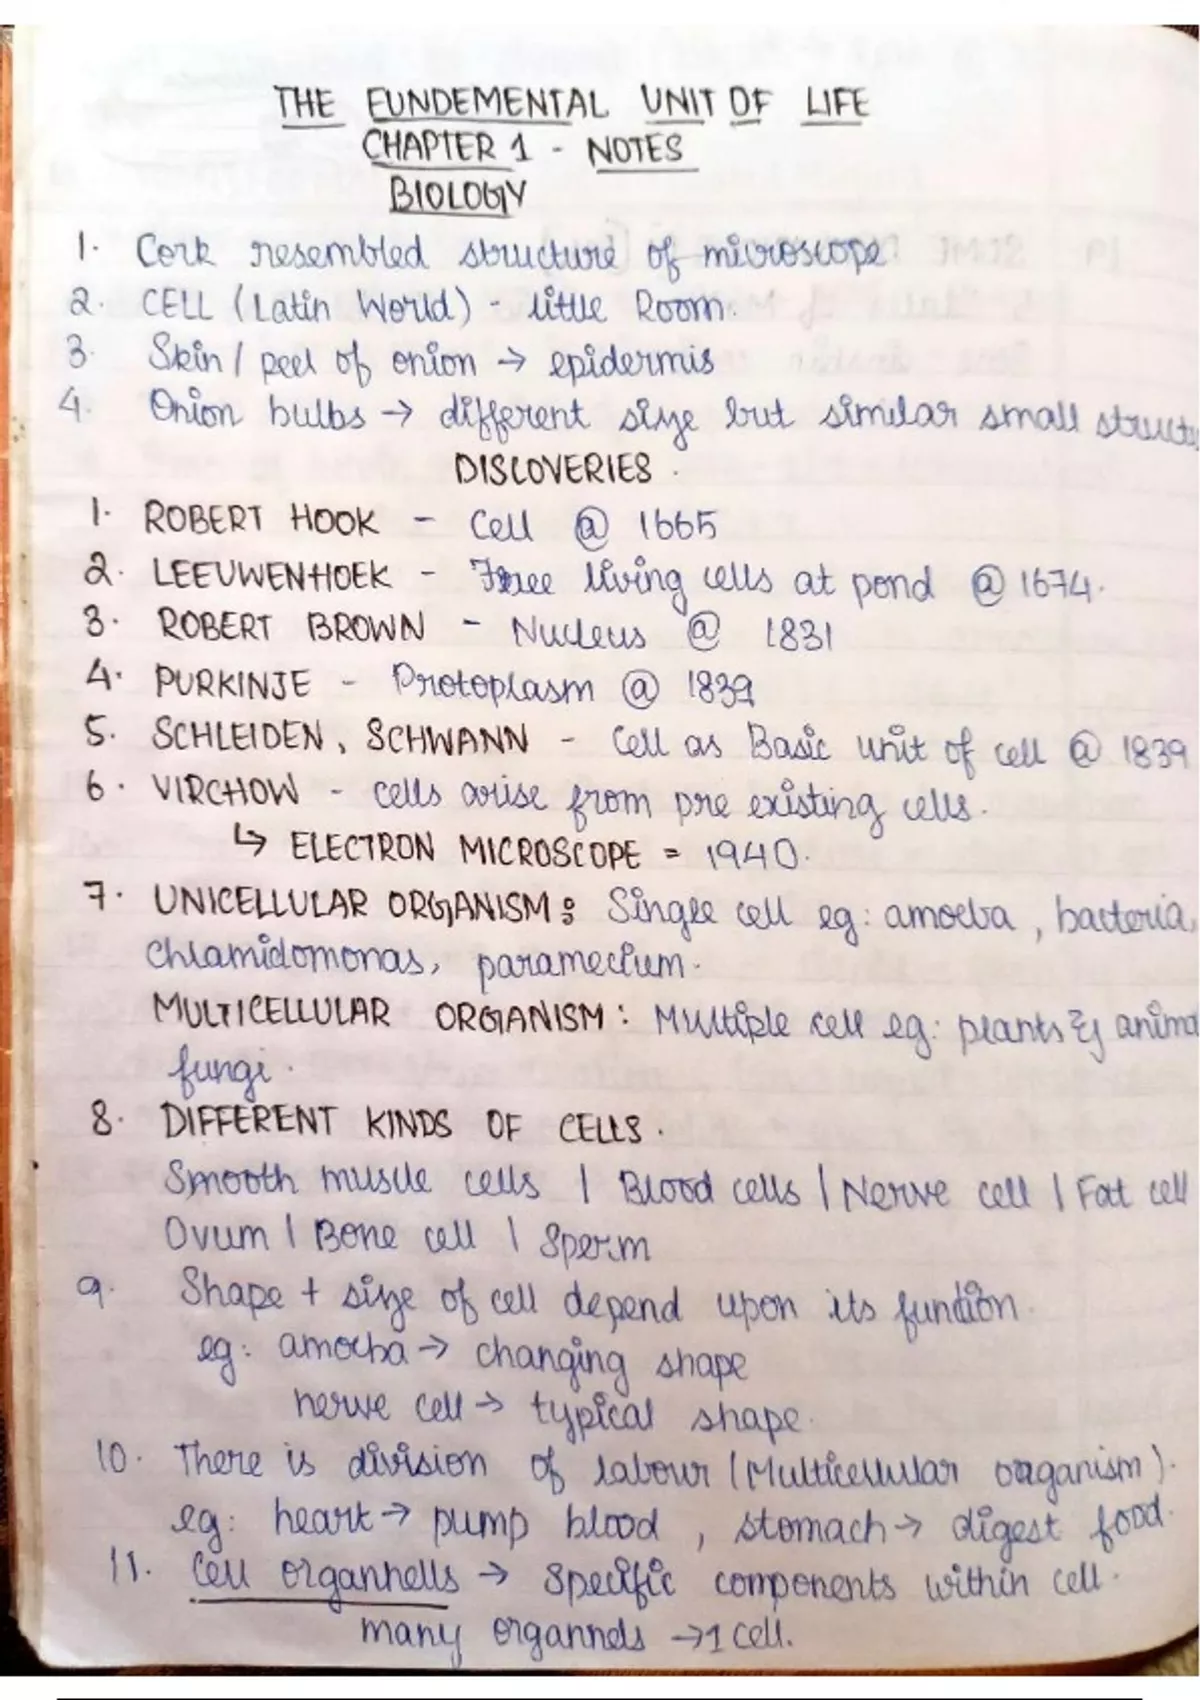 THE FUNDEMENTAL UNIT OF LIFE
CHAPTER 1 - NOTES
BIOLOGY
1. Cork resembled structure of microscope.
2. CELL (Latin World) - little Room.
3. Skin / peel of onion → epidermis
4. Onion bulbs → different size but similar small struct
DISCOVERIES.
1. ROBERT HOOK - Cell @ 1665
2. LEEUWENHOEK - Free living cells at pond @ 1674.
3. ROBERT BROWN - Nucleus @ 1831
4. PURKINJE - Protoplasm @ 1839
5. SCHLEIDEN, SCHWANN - Cell as Basic unit of cell @ 1839
6. VIRCHOW - cells arise from pre existing cells.
↳ ELECTRON MICROSCOPE = 1940.
7. UNICELLULAR ORGANISM: Single cell eg: amoeba, bacteria,
Chlamidomonas, paramecium.
MULTICELLULAR ORGANISM: Multiple cell eg: plants & anima
fungi.
8. DIFFERENT KINDS OF CELLS.
Smooth muscle cells | Blood cells | Nerve cell | Fat cell
Ovum | Bone cell | Sperm
9. Shape + size of cell depend upon its function.
eg: amoeba → changing shape
nerve cell → typical shape.
10. There is division of labour (Multicellular organism).
eg: heart → pump blood, stomach → digest food.
11. Cell organnells → Specific components within cell.
many organnels → 1 cell.